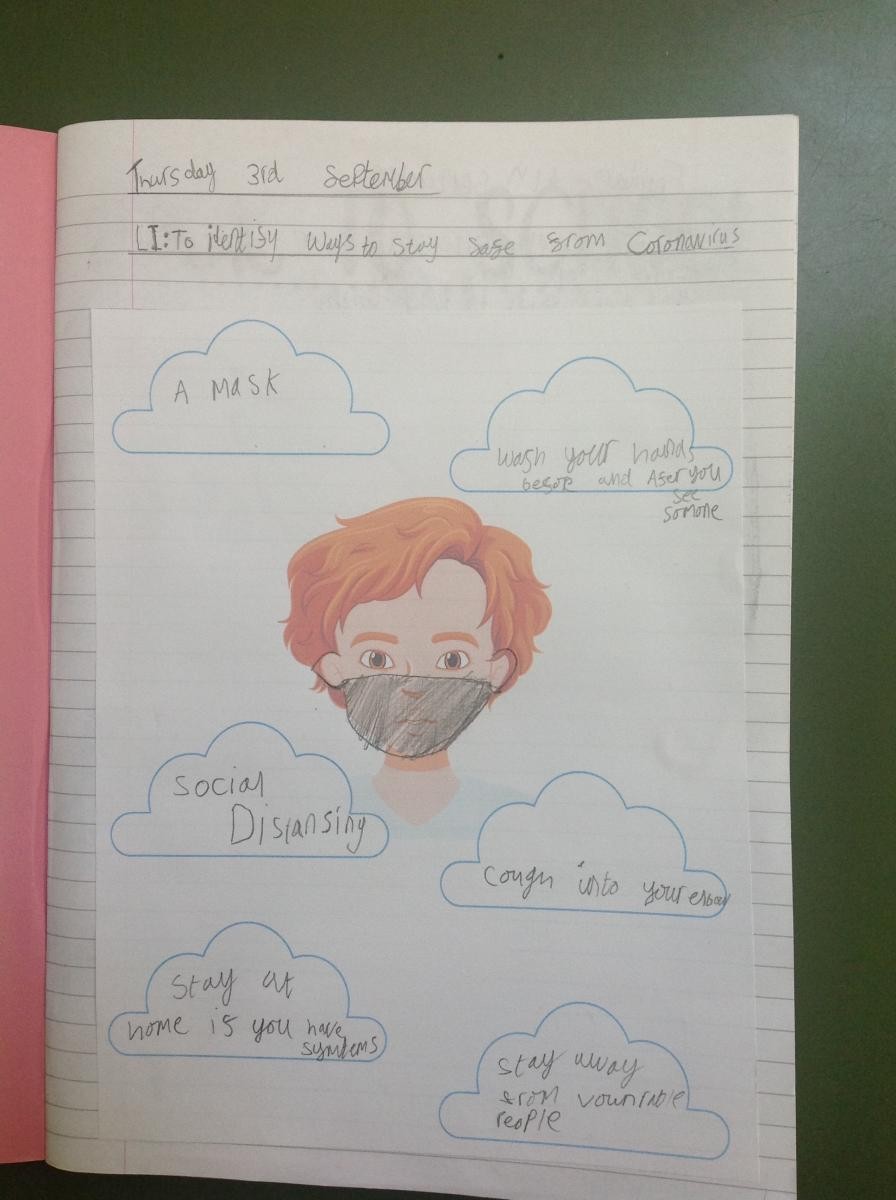 Thursday 3rd September
LI: To identify ways to stay safe from Coronavirus
A mask
Wash your hands
befor and After you
see
somone
Social
Distansing
Cough into your elbow
Stay at
home if you have
symtems
Stay away
from vounrable
people